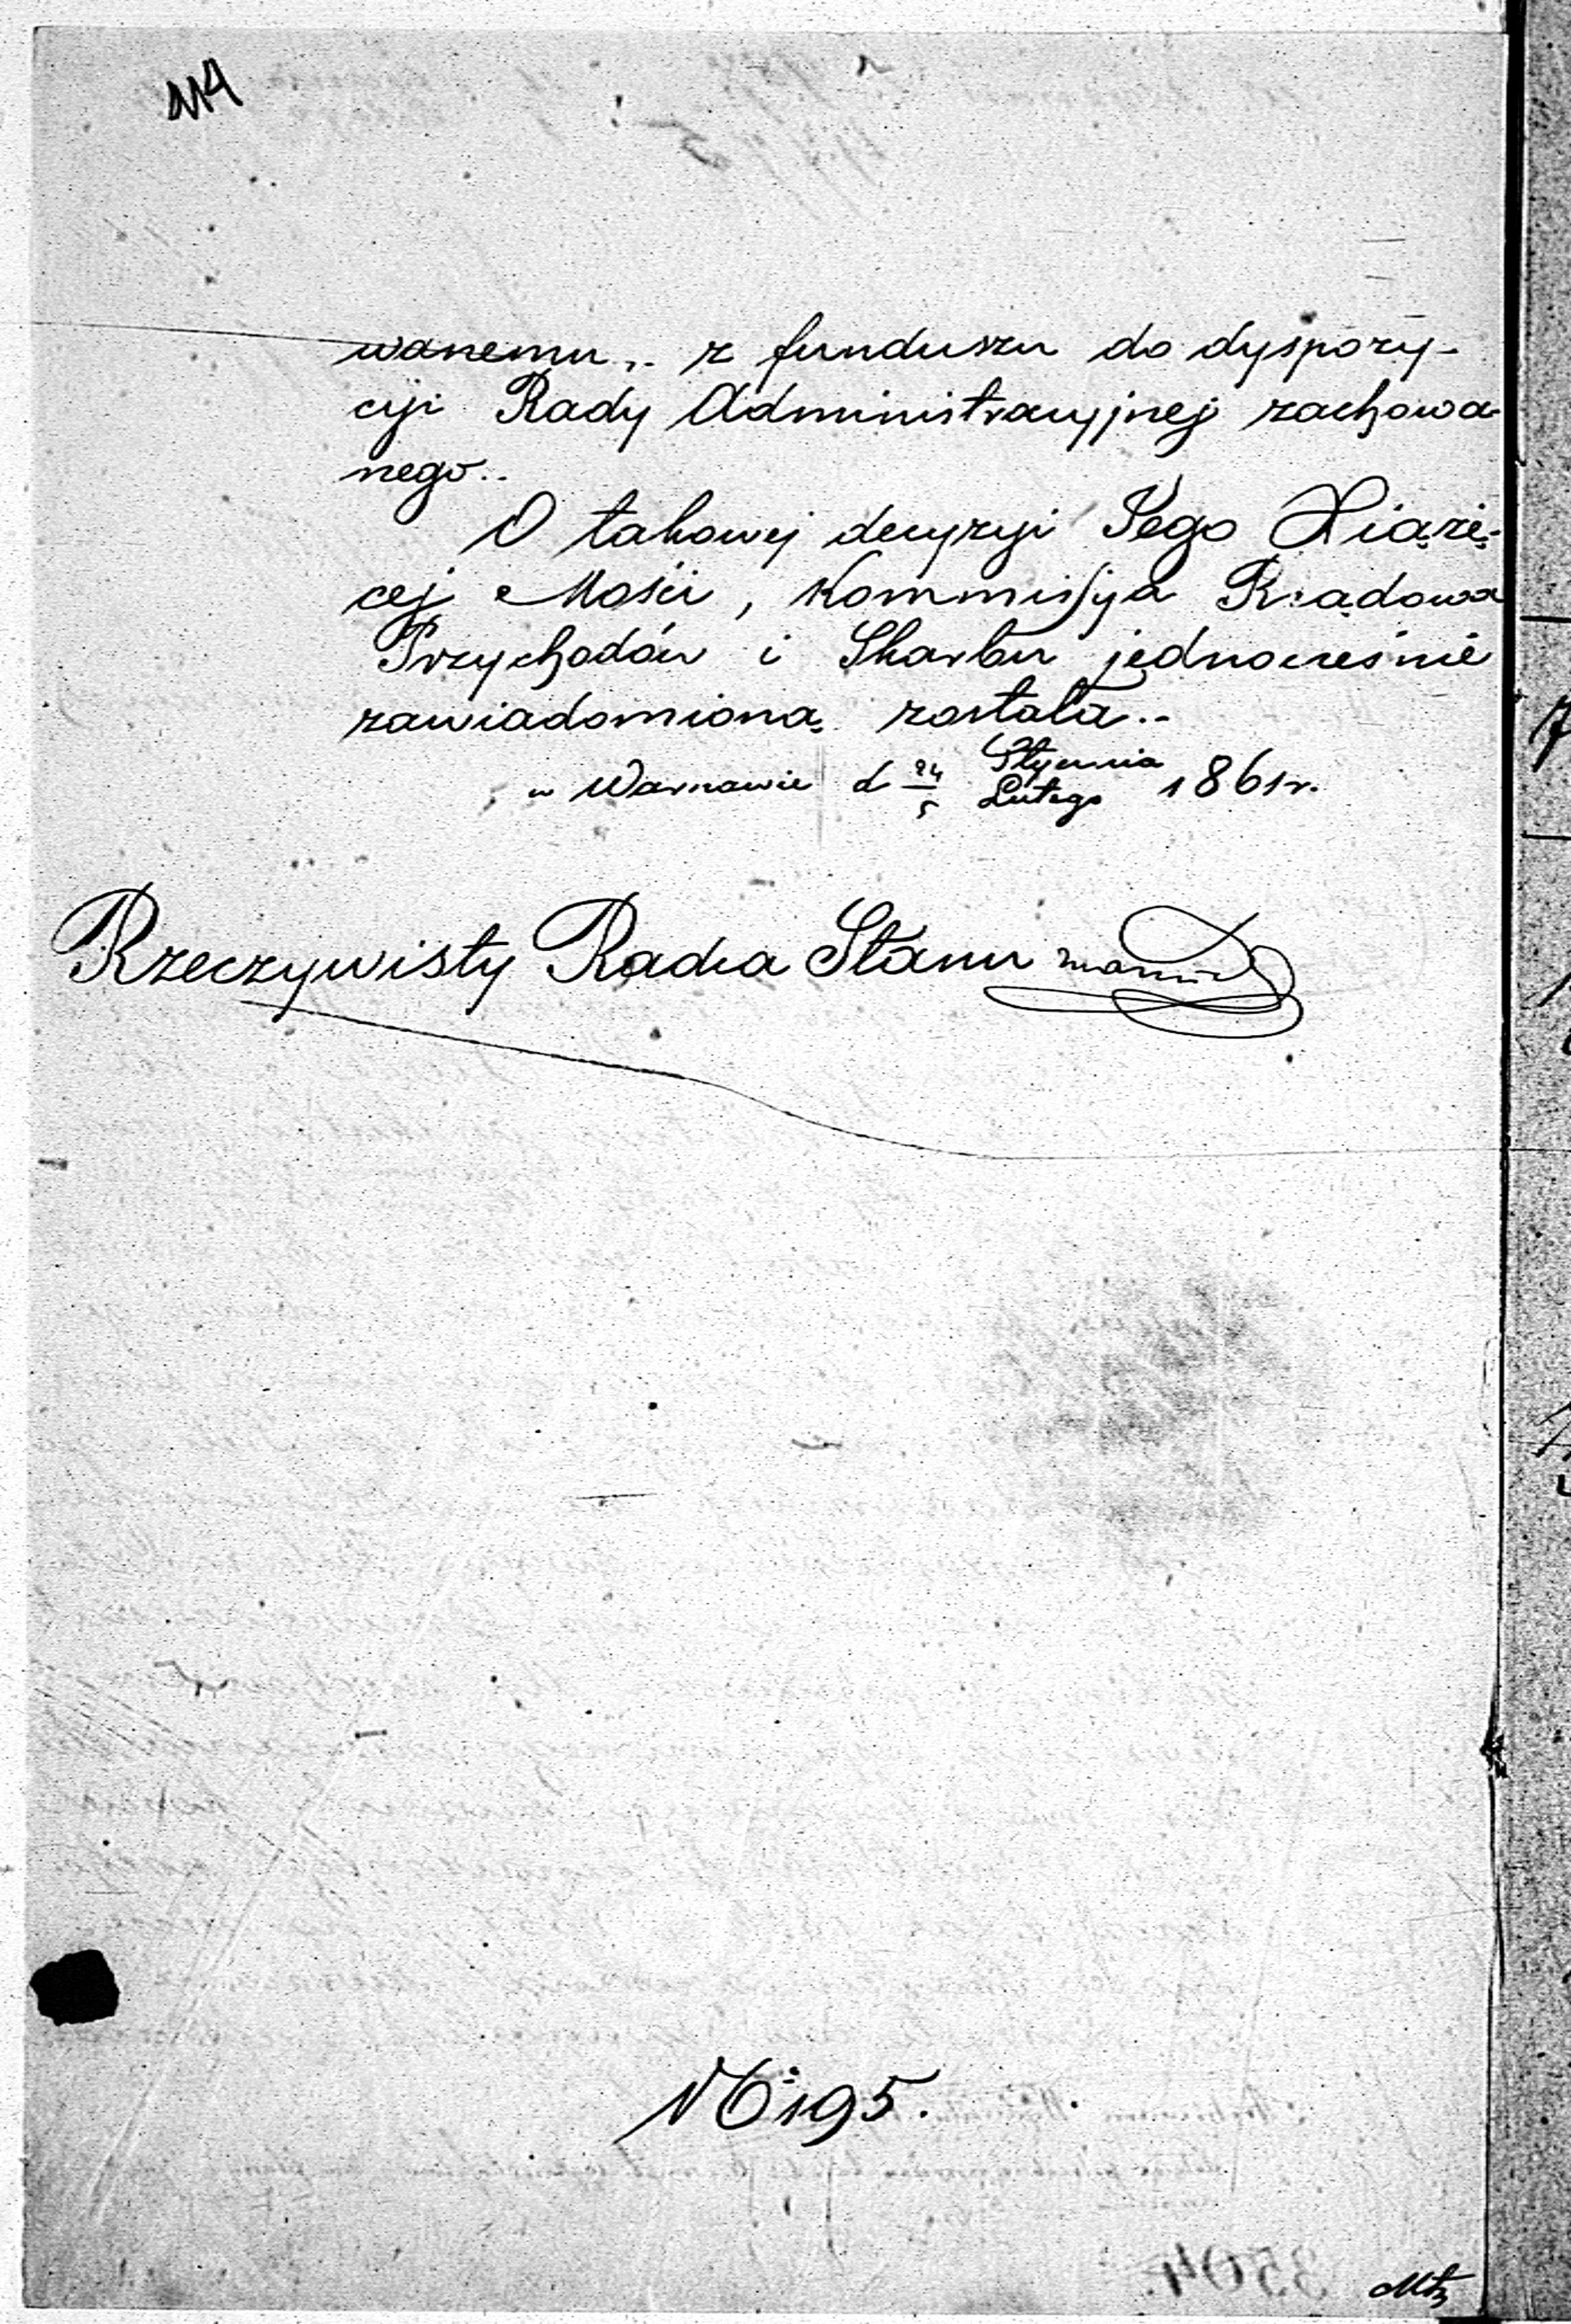 wanemu, z funduszu do dyspozy-
cyi Rady Administracyjnej zachowa-
nego..
O takowej decyzyi Jego Xiążę-
cej Mości, Kommissya Rządowa
Przychodów i Skarbu jednocześnie
zawiadomioną została..
w Warszawie d 24/5 Stycznia/Lutego 1861 r.
Rzeczywisty Radca Stanu
No 195.
3504